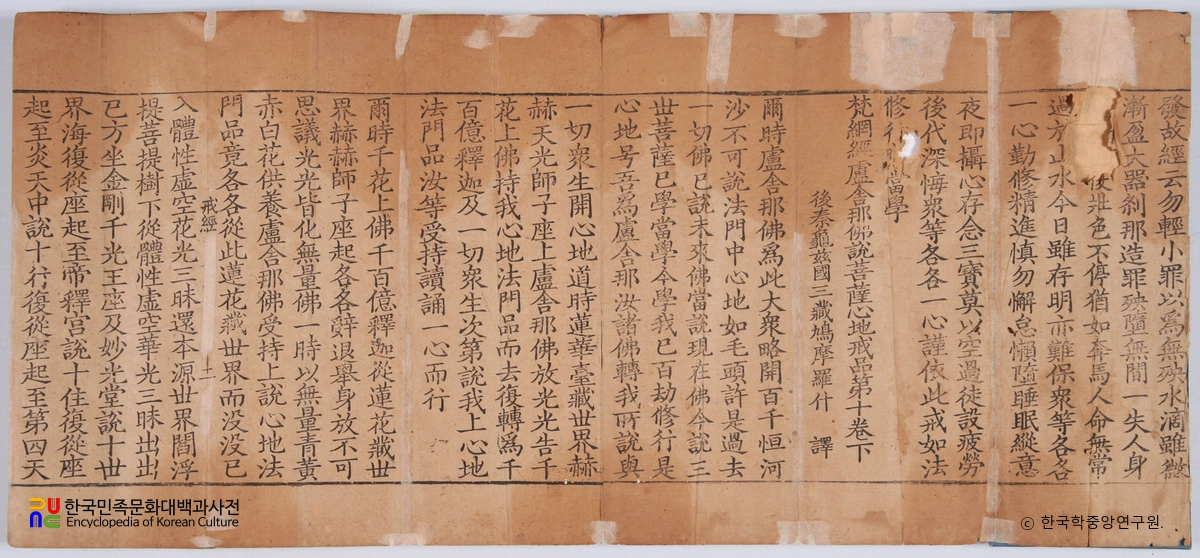 發故經云勿輕小罪以爲無殃水滴雖微
漸盈大器刹那造罪殃墮無間一失人身
壯色不停猶如奔馬人命無常
過於山水今日雖存明亦難保衆等各各
一心勤修精進慎勿懈怠懶墮睡眠縱意
夜即攝心存念三寶莫以空過徒設疲勞
後代深悔衆等各各一心謹依此戒如法
修行應當學
梵網經盧舍那佛說菩薩心地戒品第十卷下
後秦龜茲國三藏鳩摩羅什 譯
爾時盧舍那佛爲此大衆略開百千恒河
沙不可說法門中心地如毛頭許是過去
一切佛已說未來佛當說現在佛今說三
世菩薩已學當學今學我已百劫修行是
心地号吾爲盧舍那汝諸佛轉我所說與
一切衆生開心地道時蓮華臺藏世界赫
赫天光師子座上盧舍那佛放光光告千
花上佛持我心地法門品而去復轉爲千
百億釋迦及一切衆生次第說我上心地
法門品汝等受持讀誦一心而行
爾時千花上佛千百億釋迦從蓮花藏世
界赫赫師子座起各各辝退舉身放不可
思議光光皆化無量佛一時以無量青黃
赤白花供養盧舍那佛受持上說心地法
門品竟各各從此蓮花藏世界而没没已
戒經 十一
入體性虛空花光三昧還本源世界閻浮
提菩提樹下從體性虛空華光三昧出出
已方坐金剛千光王座及妙光堂說十世
界海復從座起至帝釋宫說十住復從座
起至炎天中說十行復從座起至第四天
한국민족문화대백과사전
Encyclopedia of Korean Culture
© 한국학중앙연구원.